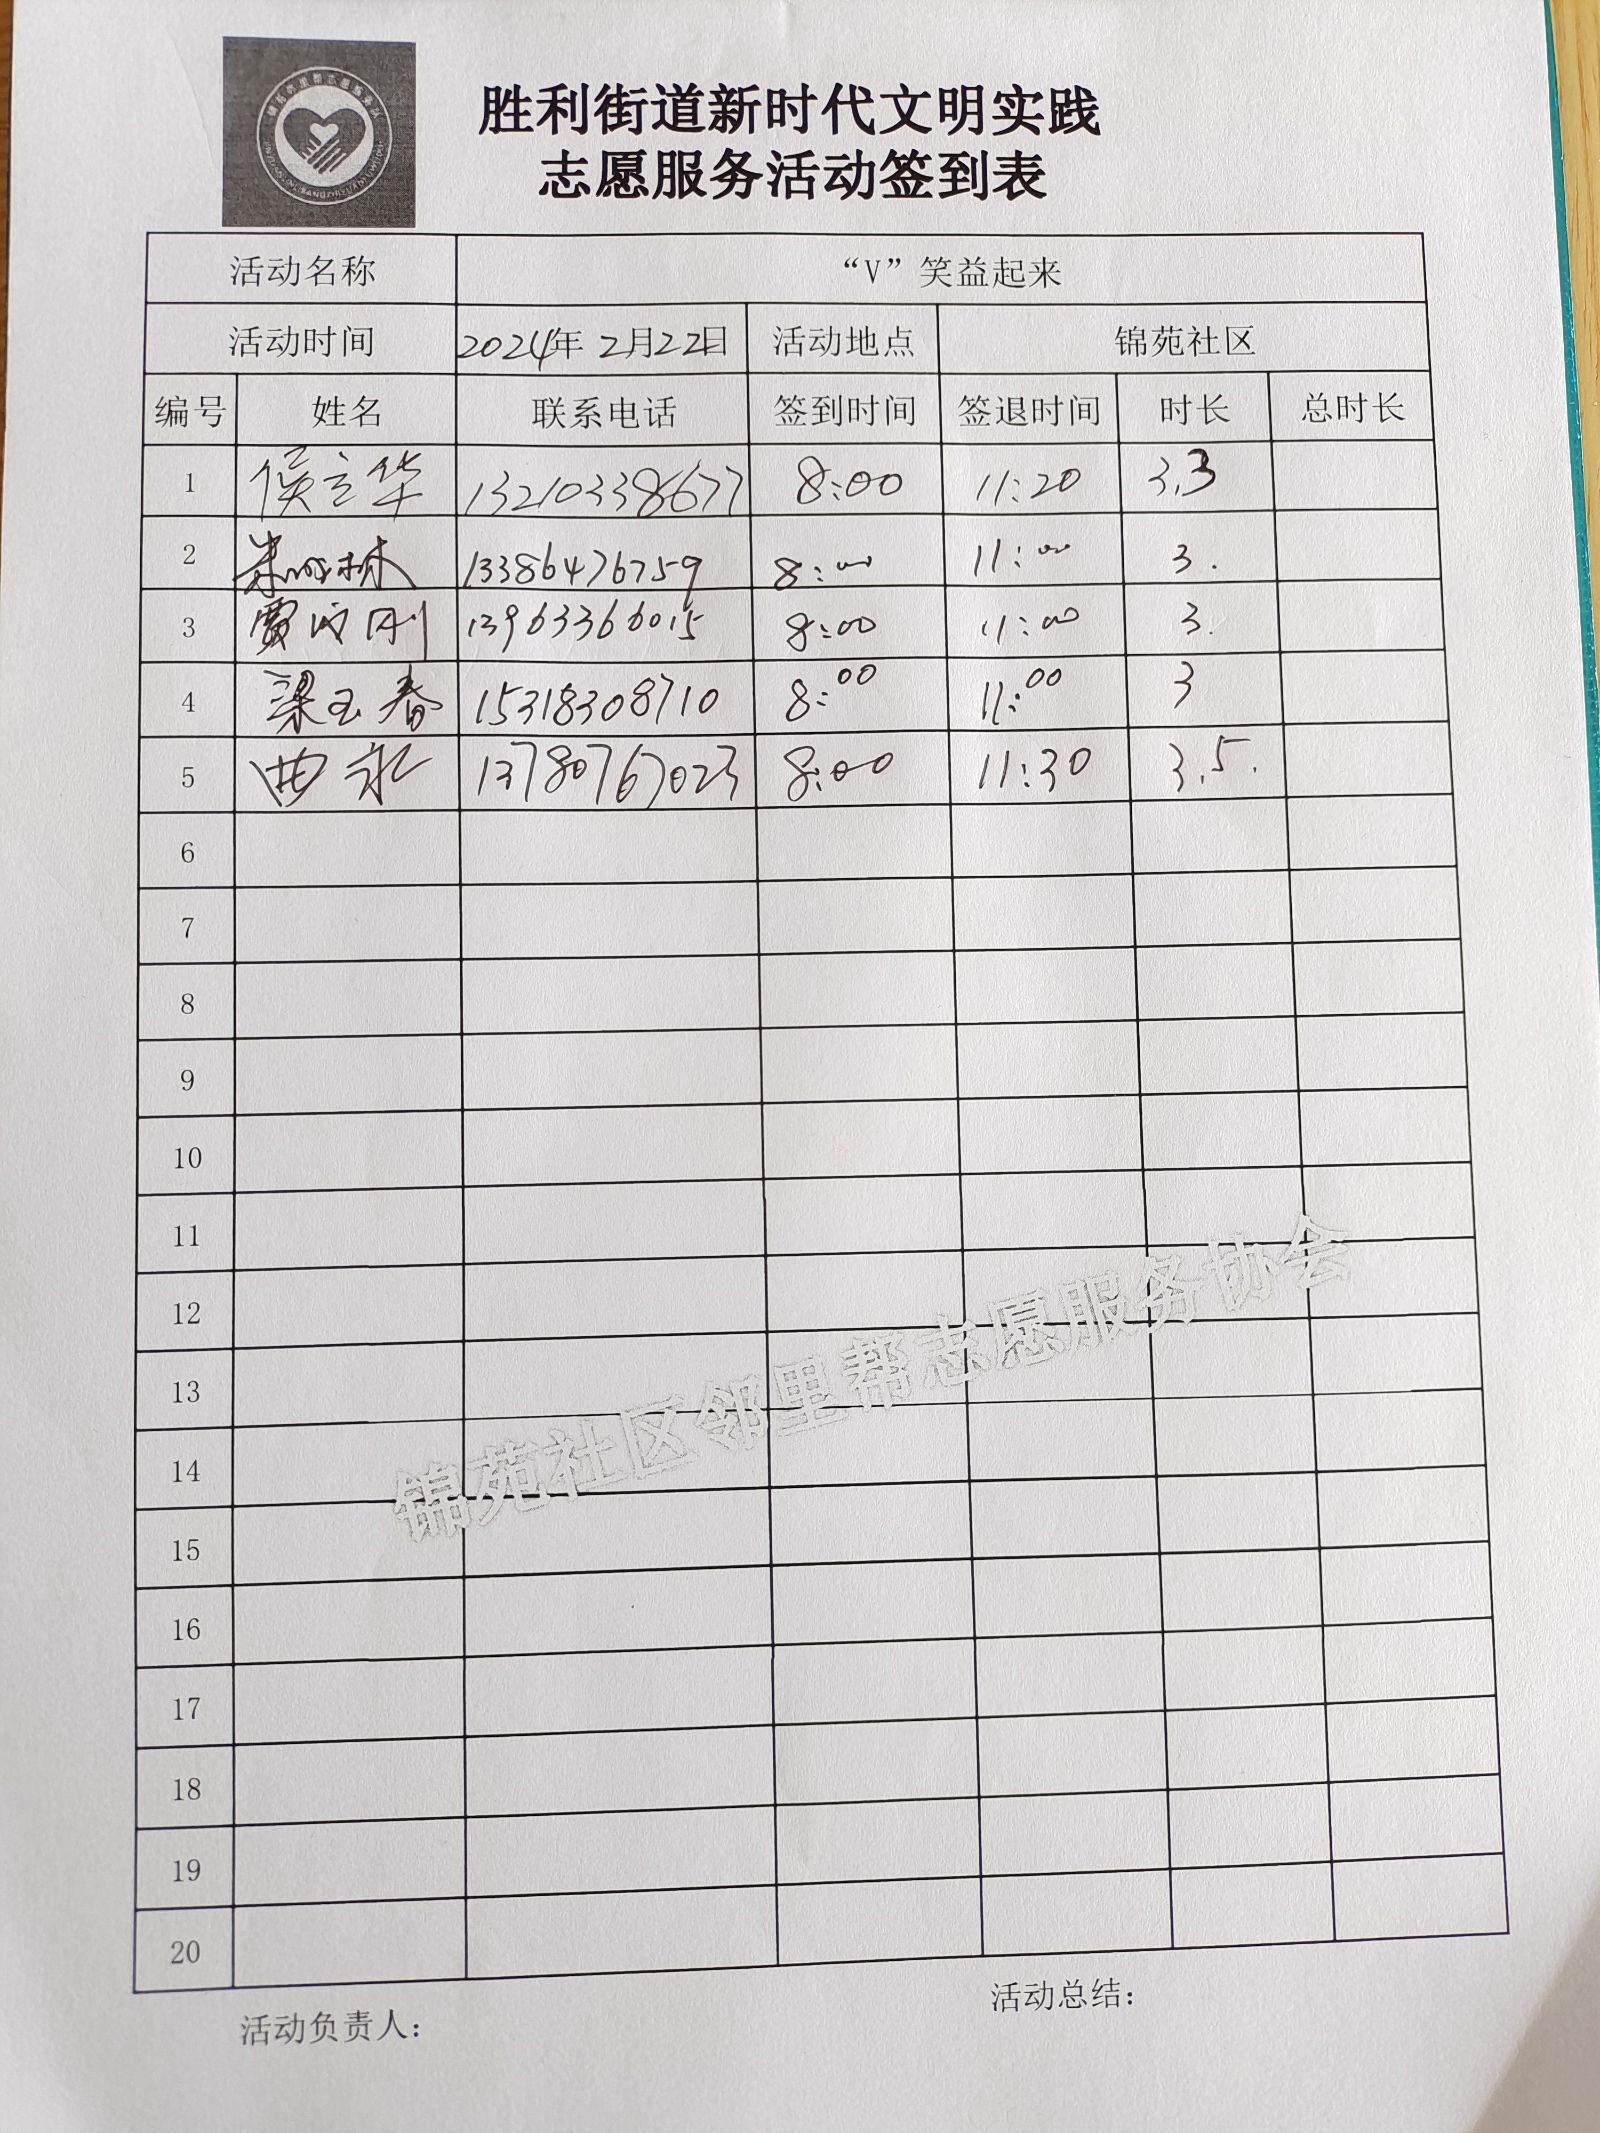 胜利街道新时代文明实践
志愿服务活动签到表
活动名称 “V”笑益起来
活动时间 2024年2月22日 活动地点 锦苑社区
编号 姓名 联系电话 签到时间 签退时间 时长 总时长
1 侯立华 13210338677 8:00 11:20 3.3
2 13386476759 8:00 11:00 3.
3 13963366015 8:00 11:00 3.
4 梁玉春 15318308710 8:00 11:00 3
5 曲永 13780767023 8:00 11:30 3.5.
6
7
8
9
10
11
12
13
14
15
16
17
18
19
20
锦苑社区邻里帮志愿服务协会
活动负责人： 活动总结：